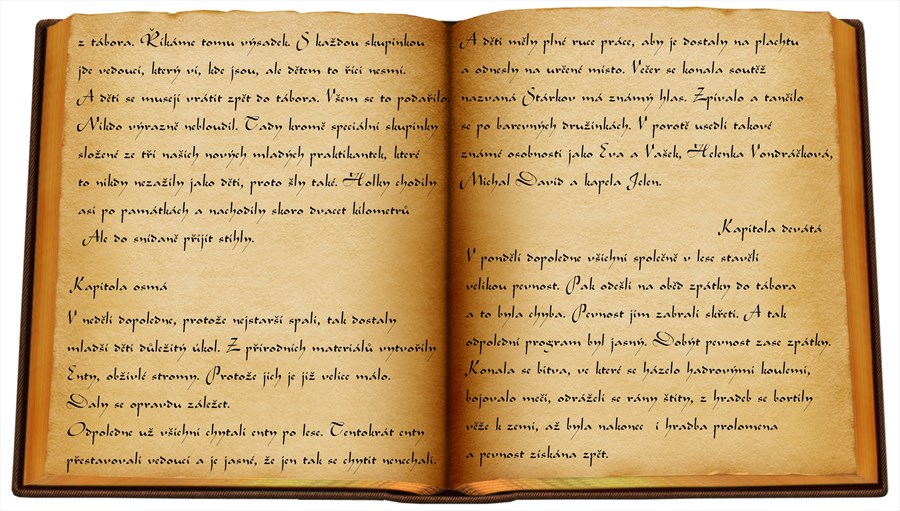 z tábora. Říkáme tomu výsadek. S každou skupinkou
jde vedoucí, který ví, kde jsou, ale dětem to říci nesmí.
A děti se musejí vrátit zpět do tábora. Všem se to podařilo.
Nikdo výrazně nebloudil. Tady kromě speciální skupinky
složené ze tří našich nových mladých praktikantek, které
to nikdy nezažily jako děti, proto šly také. Holky chodily
asi po památkách a nachodily skoro dvacet kilometrů
Ale do snídaně přijít stihly.
Kapitola osmá
V neděli dopoledne, protože nejstarší spali, tak dostaly
mladší děti důležitý úkol. Z přírodních materiálů vytvořily
Enty, obživlé stromy. Protože jich je již velice málo.
Daly se opravdu záležet.
Odpoledne už všichni chytali enty po lese. Tentokrát enty
přestavovali vedoucí a je jasné, že jen tak se chytit nenechali.
A děti měly plné ruce práce, aby je dostaly na plachtu
a odnesly na určené místo. Večer se konala soutěž
nazvaná Stárkov má známý hlas. Zpívalo a tančilo
se po barevných družinkách. V porotě usedli takové
známé osobnosti jako Eva a Vašek, Helenka Vondráčková,
Michal David a kapela Jelen.
Kapitola devátá
V pondělí dopoledne všichni společně v lese stavěli
velikou pevnost. Pak odešli na oběd zpátky do tábora
a to byla chyba. Pevnost jim zabrali skřeti. A tak
odpolední program byl jasný. Dobýt pevnost zase zpátky.
Konala se bitva, ve které se házelo hadrovými koulemi,
bojovalo meči, odráželi se rány štíty, z hradeb se bortily
věže k zemi, až byla nakonec i hradba prolomena
a pevnost získána zpět.